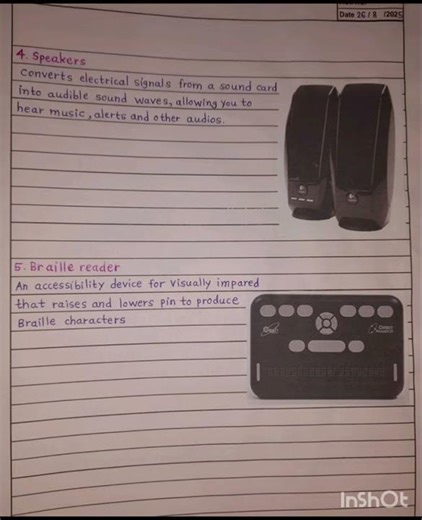 Date 26/8/2025
4. Speakers
Converts electrical signals from a sound card
into audible sound waves, allowing you to
hear music, alerts and other audios.
5. Braille reader
An accessibility device for visually impared
that raises and lowers pin to produce
Braille characters
InShOt